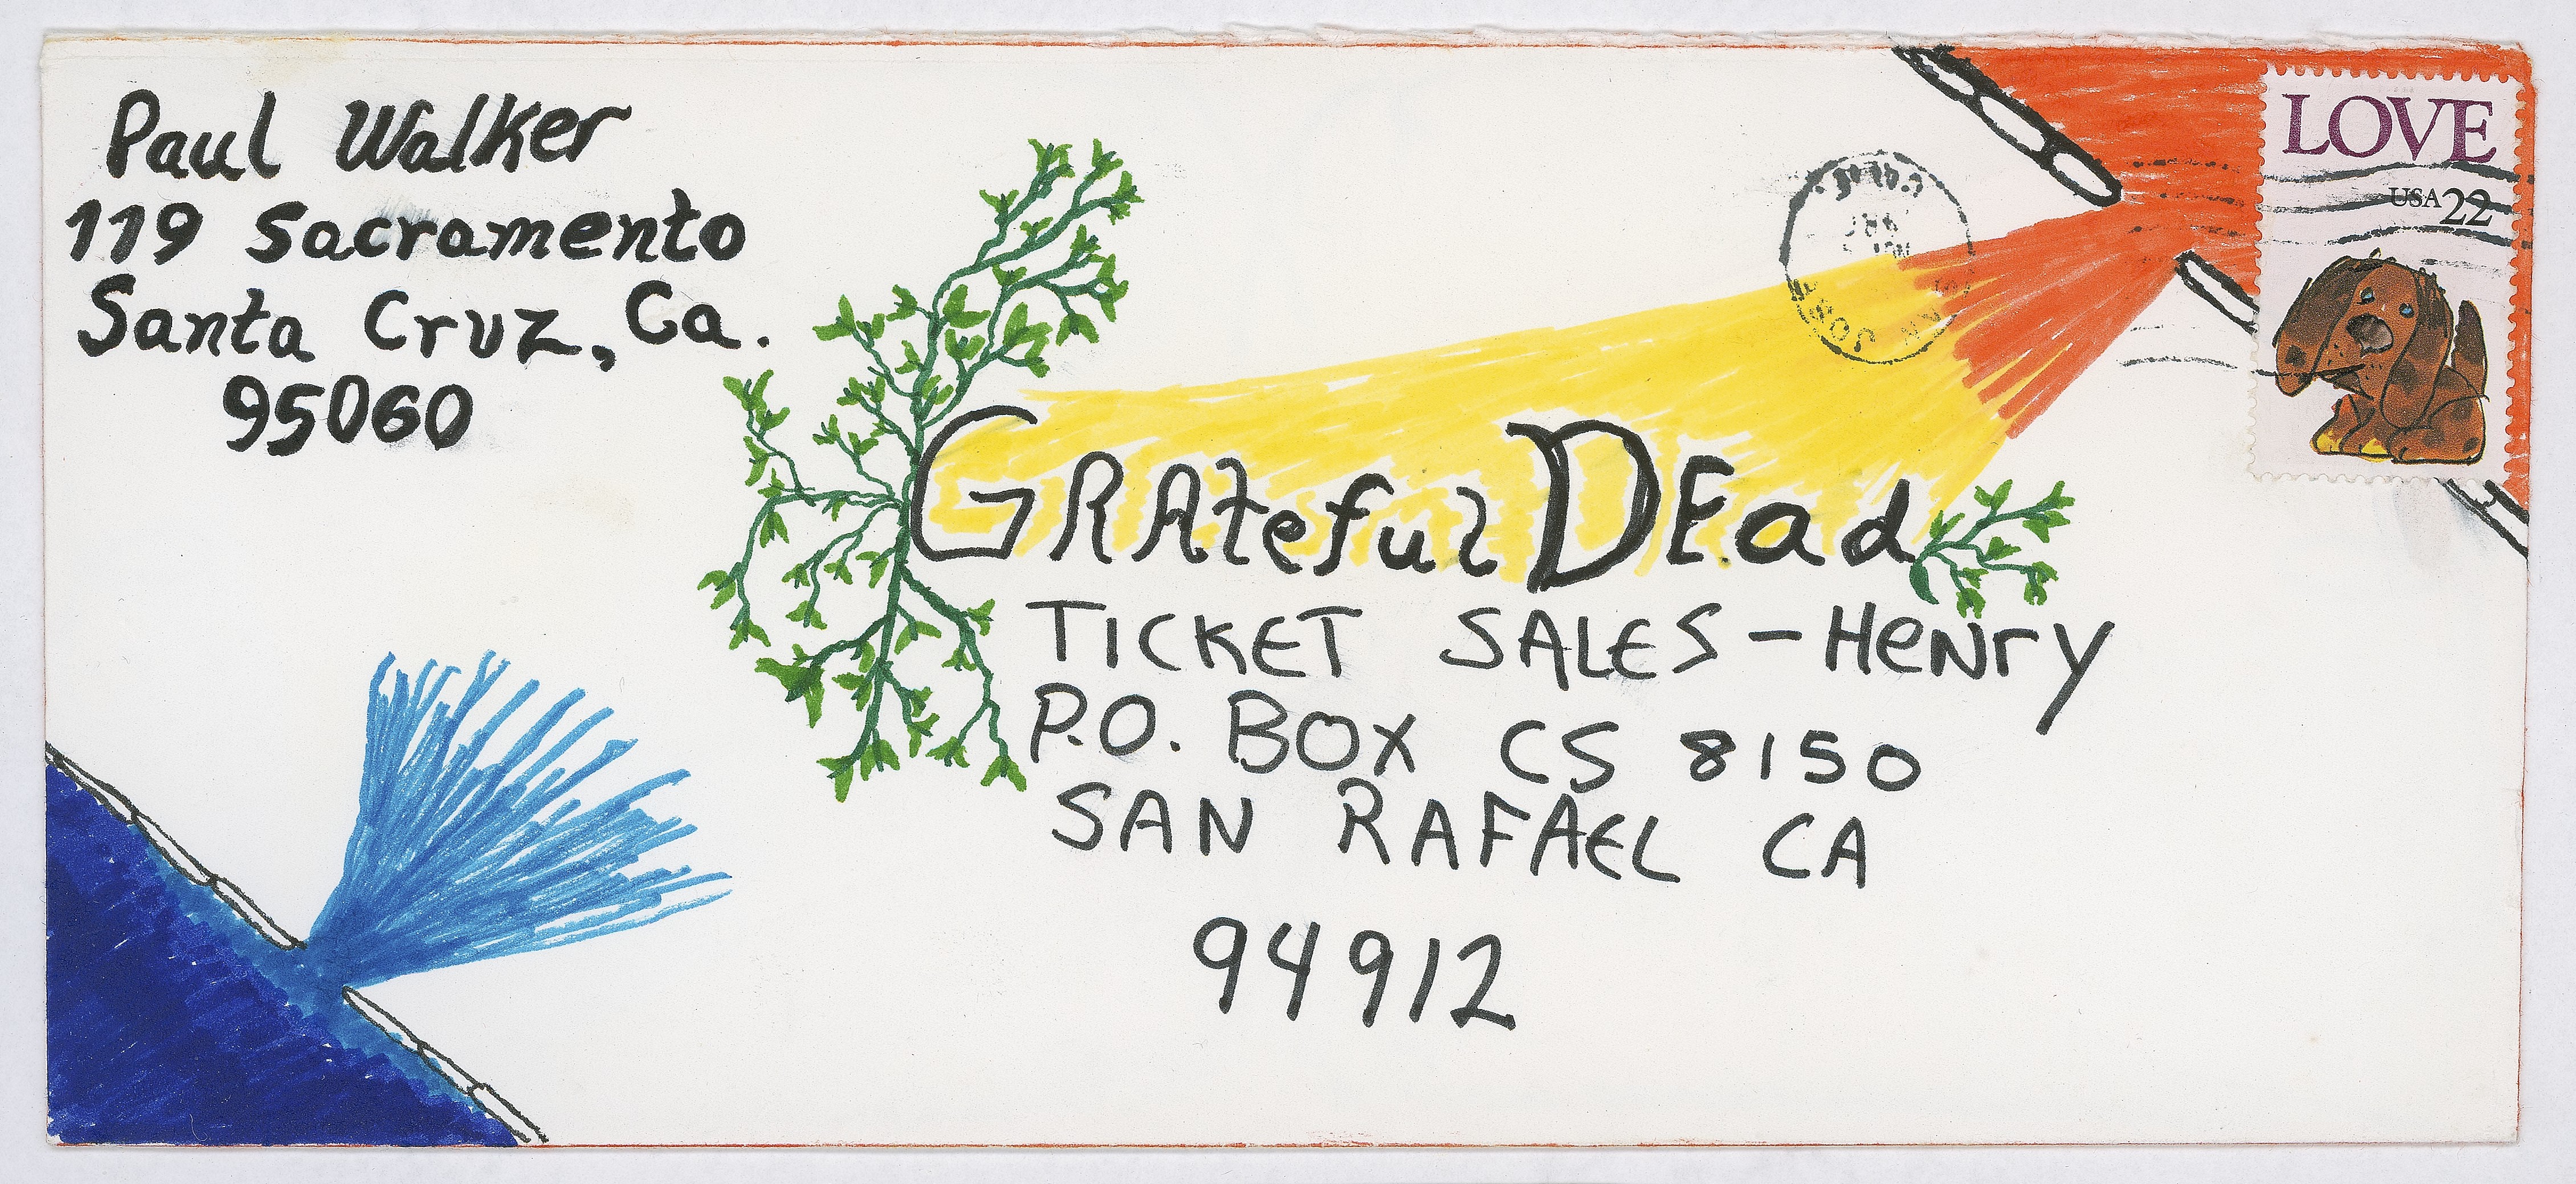 Paul Walker
119 Sacramento
Santa Cruz, Ca.
95060
LOVE
USA 22
GRAteful DEad
TICKET SALES - HeNry
P.O. BOX CS 8150
SAN RAFAEL CA
94912